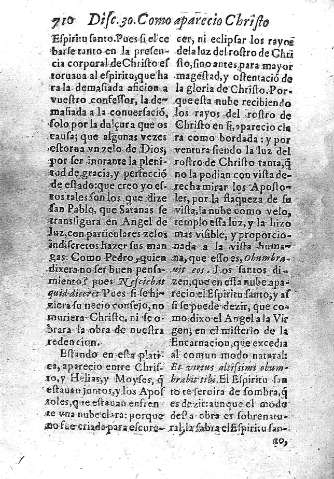 710 Disc. 30. Como aparecio Christo
Espiritu santo. Pues si el ce
barse tanto en la presen-
cia corporal de Christo es
toruaua al espiritu, que ha
ra la demasiada aficion a
vuestro confessor, la de-
masiada a la conuersació,
solo por la dulçura que os
causa; que algunas vezes
estorna vn zelo de Dios,
por ser inorante la pleni-
tud de gracia, y perfecció
de estado: que creo yo es-
tos tales son los que dize
san Pablo, que Satanas se
transfigura en Angel de
Luz, con particulares zelos
indiscretos hazer sus man
gas. Como Pedro, quien
dixera no ser buen pensa-
miento? pues Nesciebat
quid diceret Pues si se hi-
ziera su necio consejo, no
muriera Christo, ni se o-
brara la obra de nuestra
redencion.
Estando en esta plati-
ca, aparecio entre Chris-
to, y Helias, y Moyses, q̃
estauan juntos, y los Apos
toles, que estauan enfren-
te vna nube clara: porque
no fue criado para escure-
cer, ni eclipsar los rayos
de la luz del rostro de Chri
sto, sino antes para mayor
magestad, y ostentació de
la gloria de Christo. Por-
que esta nube recibiendo
los rayos del rostro de
Christo en si, aparecio cla
ra como bordada: y por
ventura siendo la luz del
rostro de Christo tanta, q̃
no la podian con vista de-
recha mirar los Aposto-
les, por la flaqueza de su
vista, la nube como velo,
templo essa luz, y la hizo
mas visible, y proporcio-
nada a la vista huma-
na, que esso es, Obumbra-
uit eos. Los santos di-
zen, que en esta nube apa-
recio el Espiritu santo, y as
si se puede dezir, que co-
mo dixo el Angel a la Vir
gen; en el misterio de la
Encarnacion, que excedia
al comun modo natural:
Et virtus altissimi obum-
brabit tibi. El Espiritu san
to te seruira de sombra, q̃
es dezir: aunque el modo
desta obra es sobrenatu-
ral, la sabra el Espiritu san-
to,